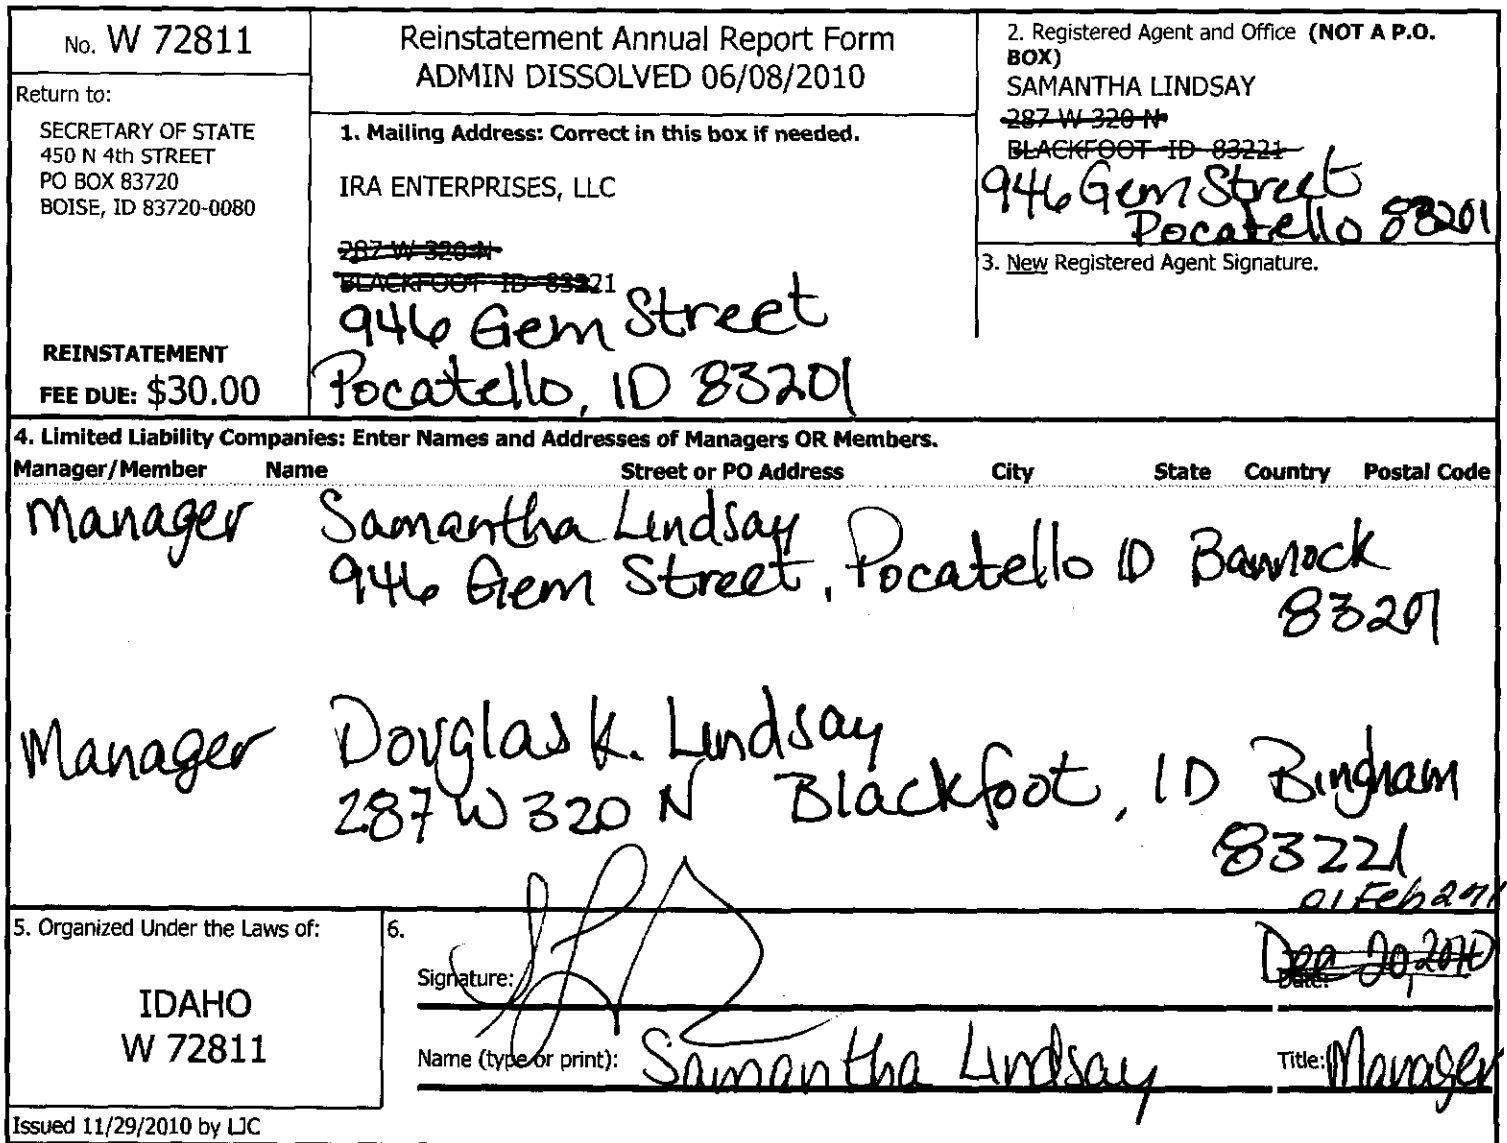 No. W 72811
Return to:
SECRETARY OF STATE
450 N 4th STREET
PO BOX 83720
BOISE, ID 83720-0080
REINSTATEMENT
FEE DUE: $30.00
Reinstatement Annual Report Form
ADMIN DISSOLVED 06/08/2010
1. Mailing Address: Correct in this box if needed.
IRA ENTERPRISES, LLC
287 W 320 N
BLACKFOOT ID 83221
946 Gem Street
Pocatello, ID 83201
2. Registered Agent and Office (NOT A P.O.
BOX)
SAMANTHA LINDSAY
287 W 320 N
BLACKFOOT ID 83221
946 Gem Street
Pocatello 83201
3. New Registered Agent Signature.
4. Limited Liability Companies: Enter Names and Addresses of Managers OR Members.
Manager/Member Name Street or PO Address City State Country Postal Code
Manager Samantha Lindsay
946 Gem Street, Pocatello ID Bannock
83201
Manager Douglas K. Lindsay
287 W 320 N Blackfoot, ID Bingham
83221
01 Feb 2011
5. Organized Under the Laws of:
IDAHO
W 72811
6.
Dec 20, 2010
Signature: Date:
Name (type or print): Samantha Lindsay Title: Manager
Issued 11/29/2010 by LJC